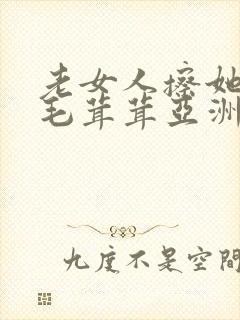 老女人擦她
毛茸茸亞洲
九度不是空間